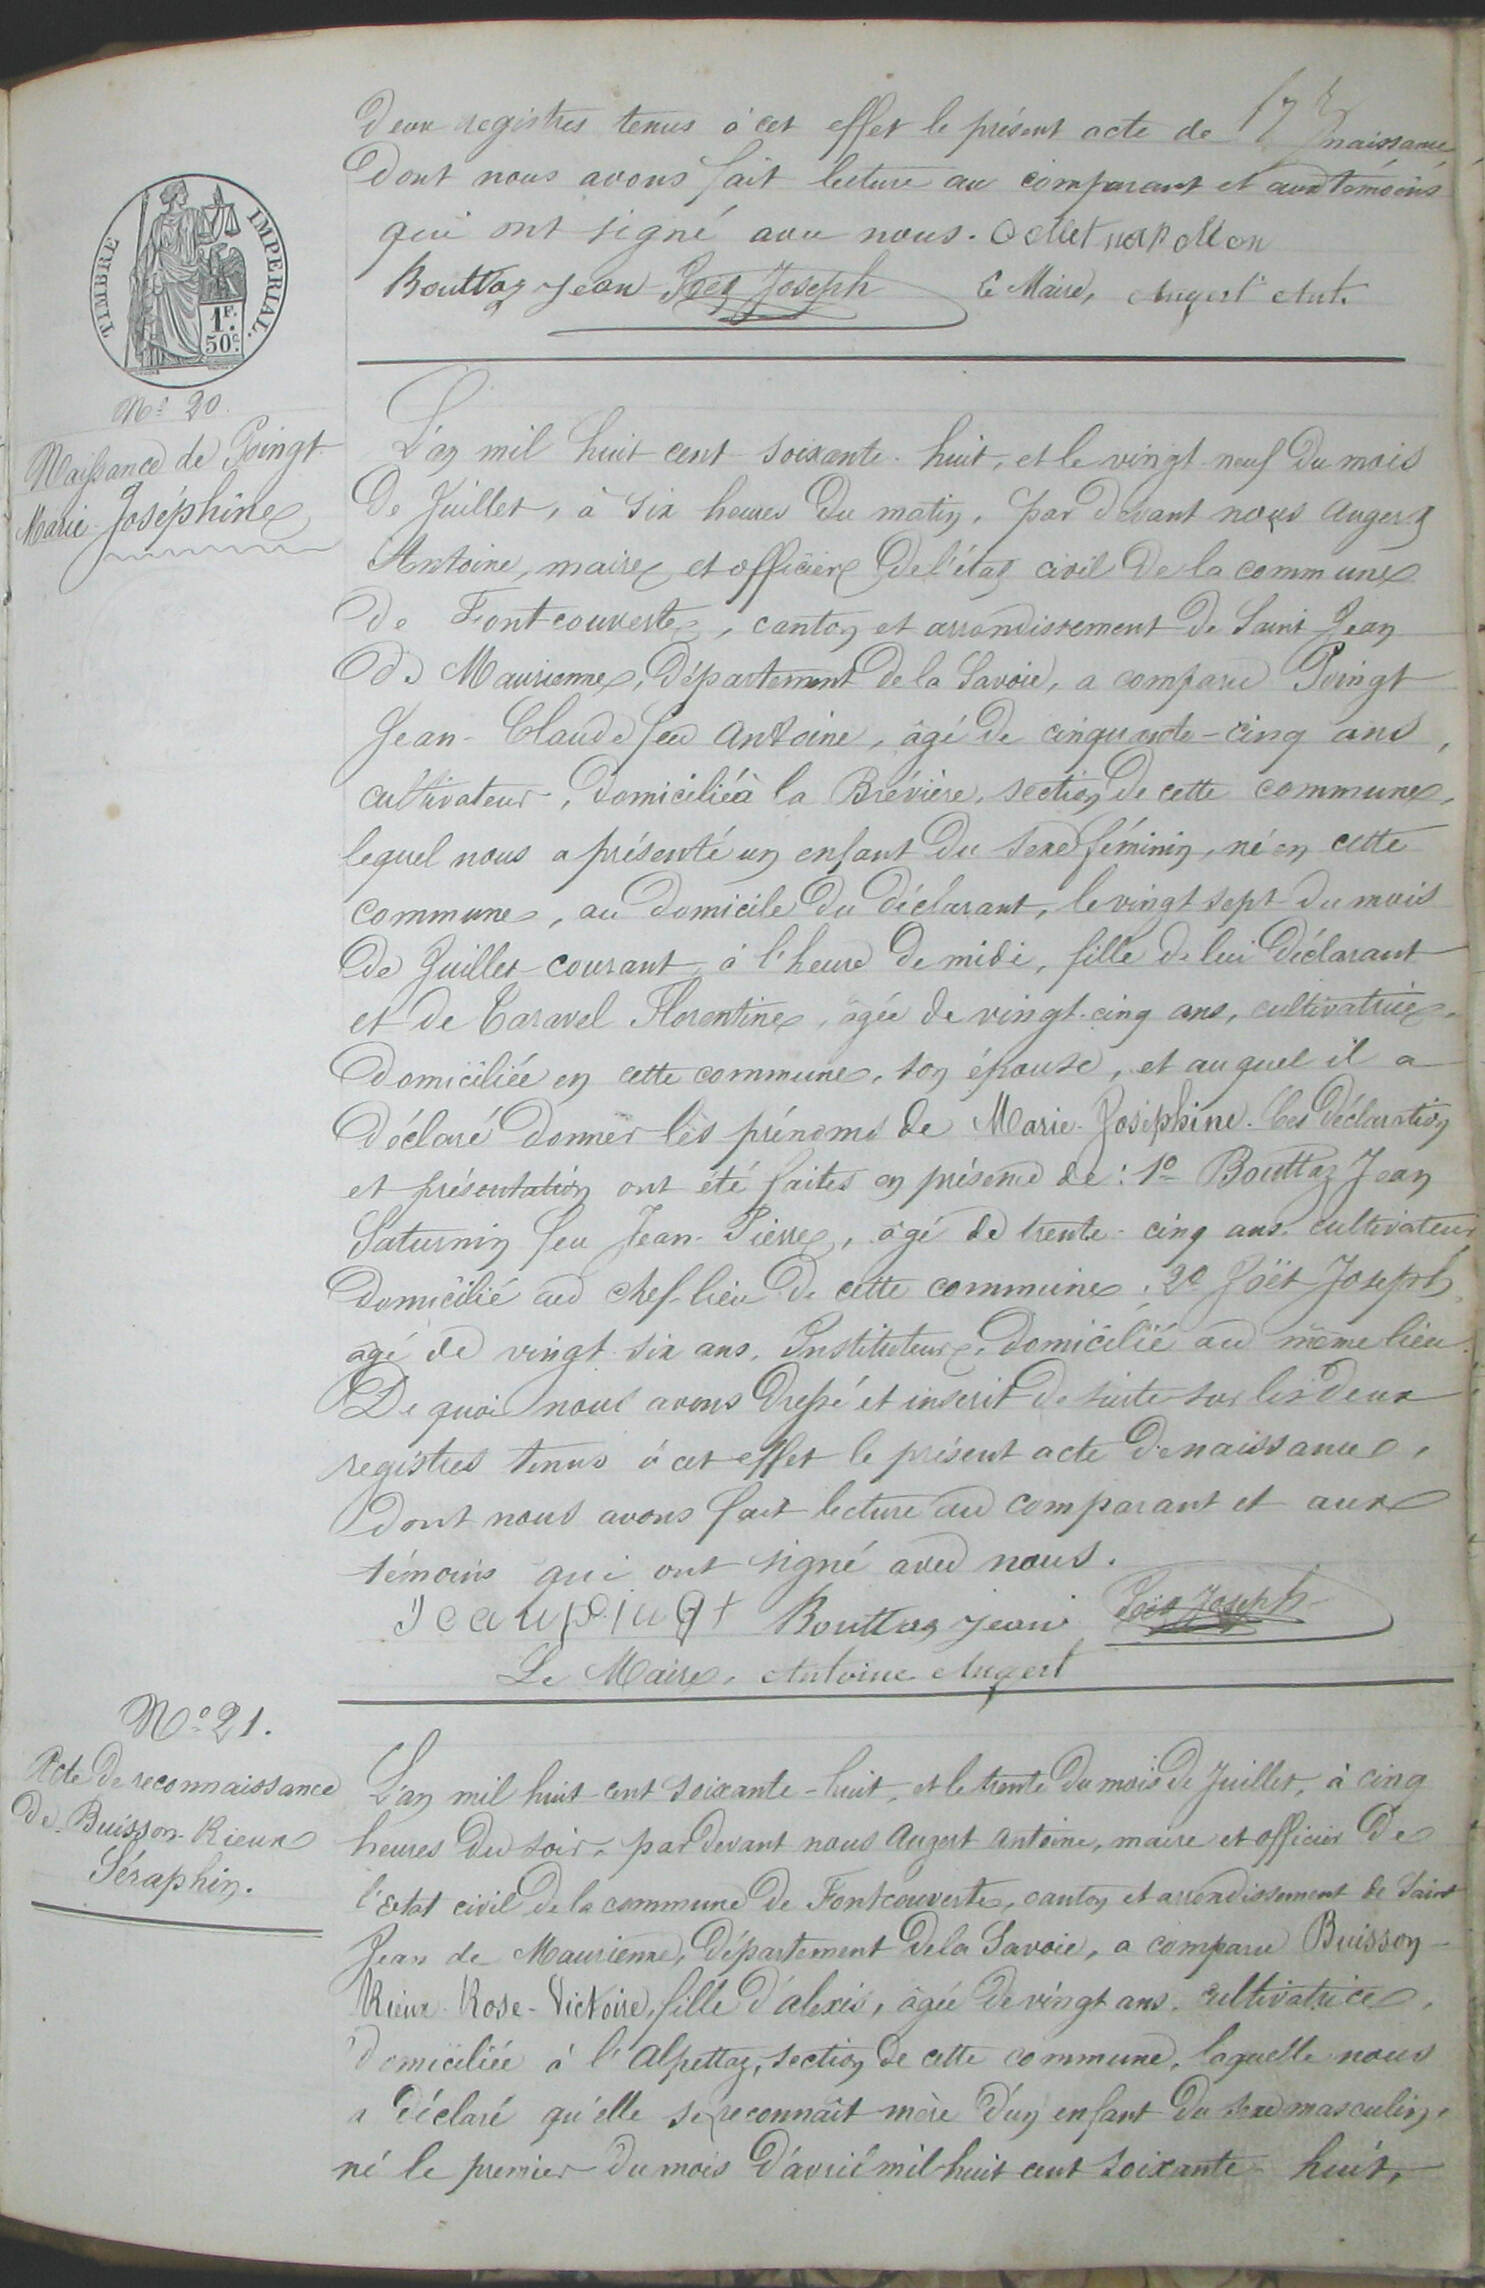 deux registres tenus à cet effet le présent acte de naissance
dont nous avons fait lecture au comparant et aux témoins
qui ont signé avec nous. Collet napollon
Bouttaz Jean Joët Joseph Le Maire, Augert Ant.
TIMBRE IMPERIAL.
1F.
50c.
No 20.
Naissance de Pvingt
Marie-Joséphine
L'an mil huit cent soixante-huit, et le vingt-neuf du mois
de Juillet, à six heures du matin, par devant nous Augert
Antoine, maire et officier de l'état civil de la commune
de Fontcouverte, canton et arrondissement de Saint Jean
de Maurienne, Département de la Savoie, a comparu Pvingt
Jean-Claude feu Antoine, âgé de cinquante-cinq ans,
cultivateur, domicilié à la Brévière, section de cette commune,
lequel nous a présenté un enfant du sexe féminin, né en cette
commune, au domicile du déclarant, le vingt sept du mois
de Juillet courant, à l'heure de midi, fille de lui déclarant
et de Caravel Florentine, âgée de vingt-cinq ans, cultivatrice,
domiciliée en cette commune, son épouse, et auquel il a
déclaré donner les prénoms de Marie-Joséphine. Ces déclaration
et présentation ont été faites en présence de: 1o Bouttaz Jean
Saturnin feu Jean-Pierre, âgé de trente-cinq ans, cultivateur
domicilié au chef-lieu de cette commune. 2o Joët Joseph,
âgé de vingt-six ans, Instituteur, domicilié au même lieu.
De quoi nous avons dressé et inscrit de suite sur les deux
registres tenus à cet effet le présent acte de naissance,
dont nous avons fait lecture au comparant et aux
témoins qui ont signé avec nous.
Jean Bouttaz Jean Joët Joseph
Le Maire, Antoine Augert
No 21.
Acte de reconnaissance
de Buisson-Rieux
Séraphin.
L'an mil huit-cent soixante-huit, et le trente du mois de Juillet, à cinq
heures du soir, par devant nous Augert Antoine, maire et officier de
l'Etat civil de la commune de Fontcouverte, canton et arrondissement de Saint
Jean de Maurienne, Département de la Savoie, a comparu Buisson-
Rieux Rose-Victoire, fille d'alexis, âgée de vingt ans, cultivatrice,
domiciliée à l'Alpettaz, section de cette commune, laquelle nous
a déclaré qu'elle se reconnaît mère d'un enfant du sexe masculin,
né le premier du mois d'avril mil-huit cent soixante-huit,